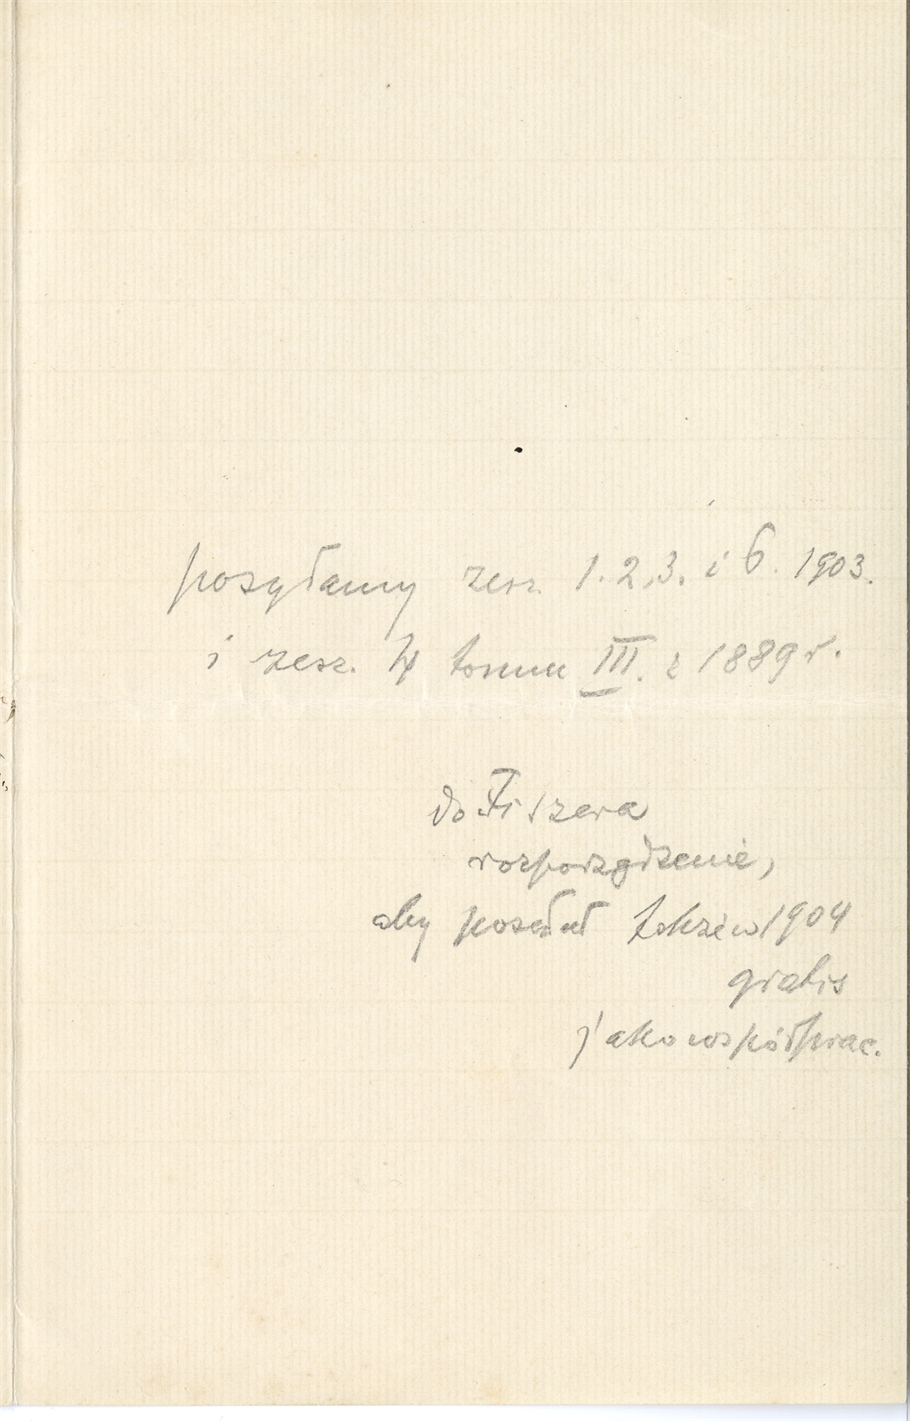 posyłamy zesz. 1. 2, 3. i 6. 1903.
i zesz. 4 tomu III. z 1889 r.
do Fiszera
rozporządzenie,
aby posełał także w 1904
gratis
jako współprac.